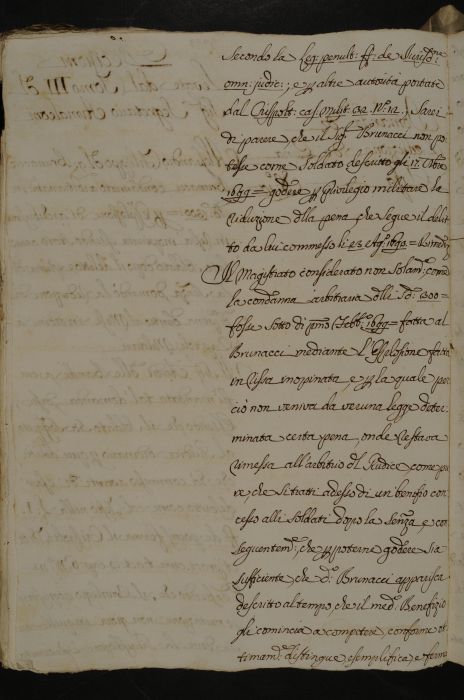 secondo la leg: penult: ff: de Jurisd:ne
omn: judic:, e p altre autorità portate
dal Crispolt: cas: milit: 32. N:o 12. Sarei
di parere, che il Sig:r Brunacci non po-
tesse come Soldato descritto gli 17. Ottre
1699= godere p privilegio militare la
riduzione dlla pena, che segue il delit-
to da lui commesso li 23 Ag:o 1690.=
Il Magistrato considerato non solam:e come
la condanna arbitraria dlli sd: 300=
fosse sotto dì primo Febb:o 1699= fatta al
Brunacci mediante l'Esplosione fatta
in rissa inopinata, e p la quale per-
ciò non veniva da veruna legge deter-
minata certa pena, onde restava
rimessa all'arbitrio dl Giudice, come pu-
re, che si tratti adesso di un benefizio con-
cesso alli soldati dopo la Senza, e con-
seguentem:e, che p poterne godere sia
sufficiente, che d:o Brunacci apparisca
descritto al tempo, che il med:o Benefizio
gli comincia a competere, conforme ot-
timam:e distingue, esemplifica, e ferma